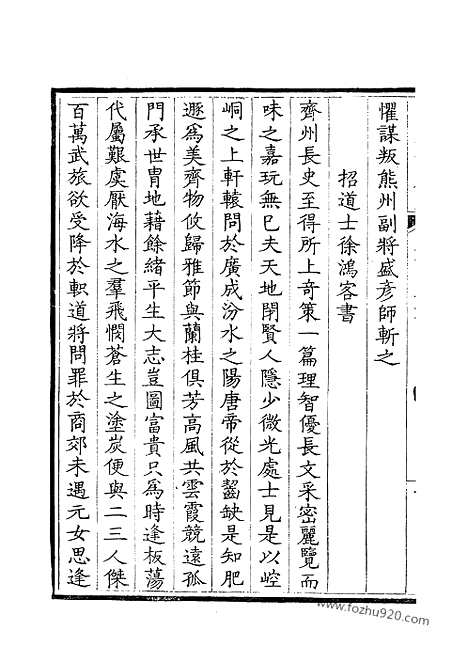 懼謀叛熊州副將盛彥師斬之
招道士徐鴻客書
齊州長史至得所上奇策一篇理智優長文采密麗覽而
味之嘉玩無已夫天地閉賢人隱少微光處士見是以崆
峒之上軒轅問於廣成汾水之陽唐帝從於齧缺是知肥
遯爲美齊物攸歸雅節與蘭桂俱芳高風共雲霞競遠孤
門承世胄地藉餘緒平生大志豈圖富貴只爲時逢板蕩
代屬艱虞厭海水之羣飛憫蒼生之塗炭便與二三人傑
百萬武旅欲受降於軹道將問罪於商郊未遇元女思逢
www.fozhu920.com